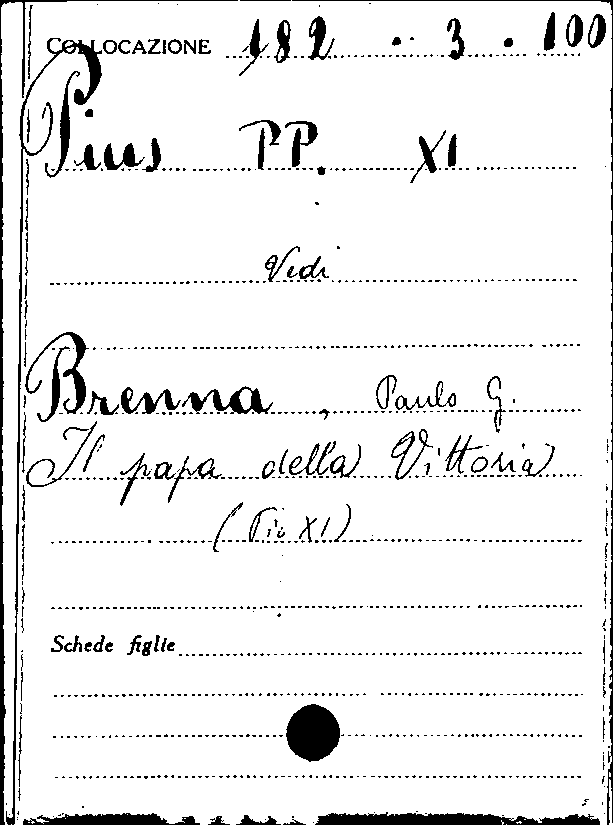 COLLOCAZIONE 182 . 3 . 100
Pius PP. XI
Vedi
Brenna, Paulo G.
Il papa della Vittoria
(Pio XI)
Schede figlie